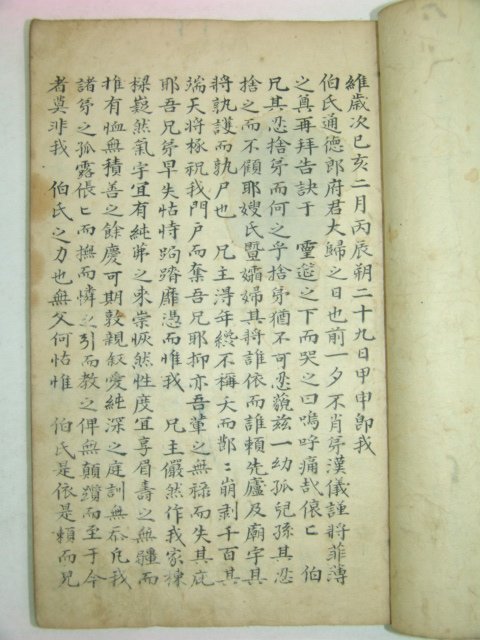 維歲次己亥二月丙辰朔二十九日甲申卽我
伯氏通德郎府君大歸之日也前一夕不肖弟漢儀謹將菲薄
之奠再拜告訣于 靈筵之下而哭之曰嗚呼痛哉倀〻 伯
兄其忍捨弟而何之乎捨弟猶不可忍藐玆一幼孤兒孫其忍
捨之而不顧耶嫂氏曁孀婦其將誰依而誰賴先廬及廟宇其
將孰護而孰尸也 兄主得年縱不稱夭而鄙〻崩剥千百其
端天將椓祝我門戶而奪吾兄耶抑亦吾輩之無祿而失其庇
耶吾兄弟早失怙恃跼蹐靡憑而惟我 兄主儼然作我家棟
樑嶷然氣宇宜有純茀之來崇恢然性度宜享眉壽之無疆而
惟有恤無積善之餘慶可期敦親敍愛純深之庭訓無忝凡我
諸弟之孤露倀〻而撫而憐之引而敎之俾無顚躓而至于今
者莫非我 伯氏之力也無父何怙惟 伯氏是依是賴而兄